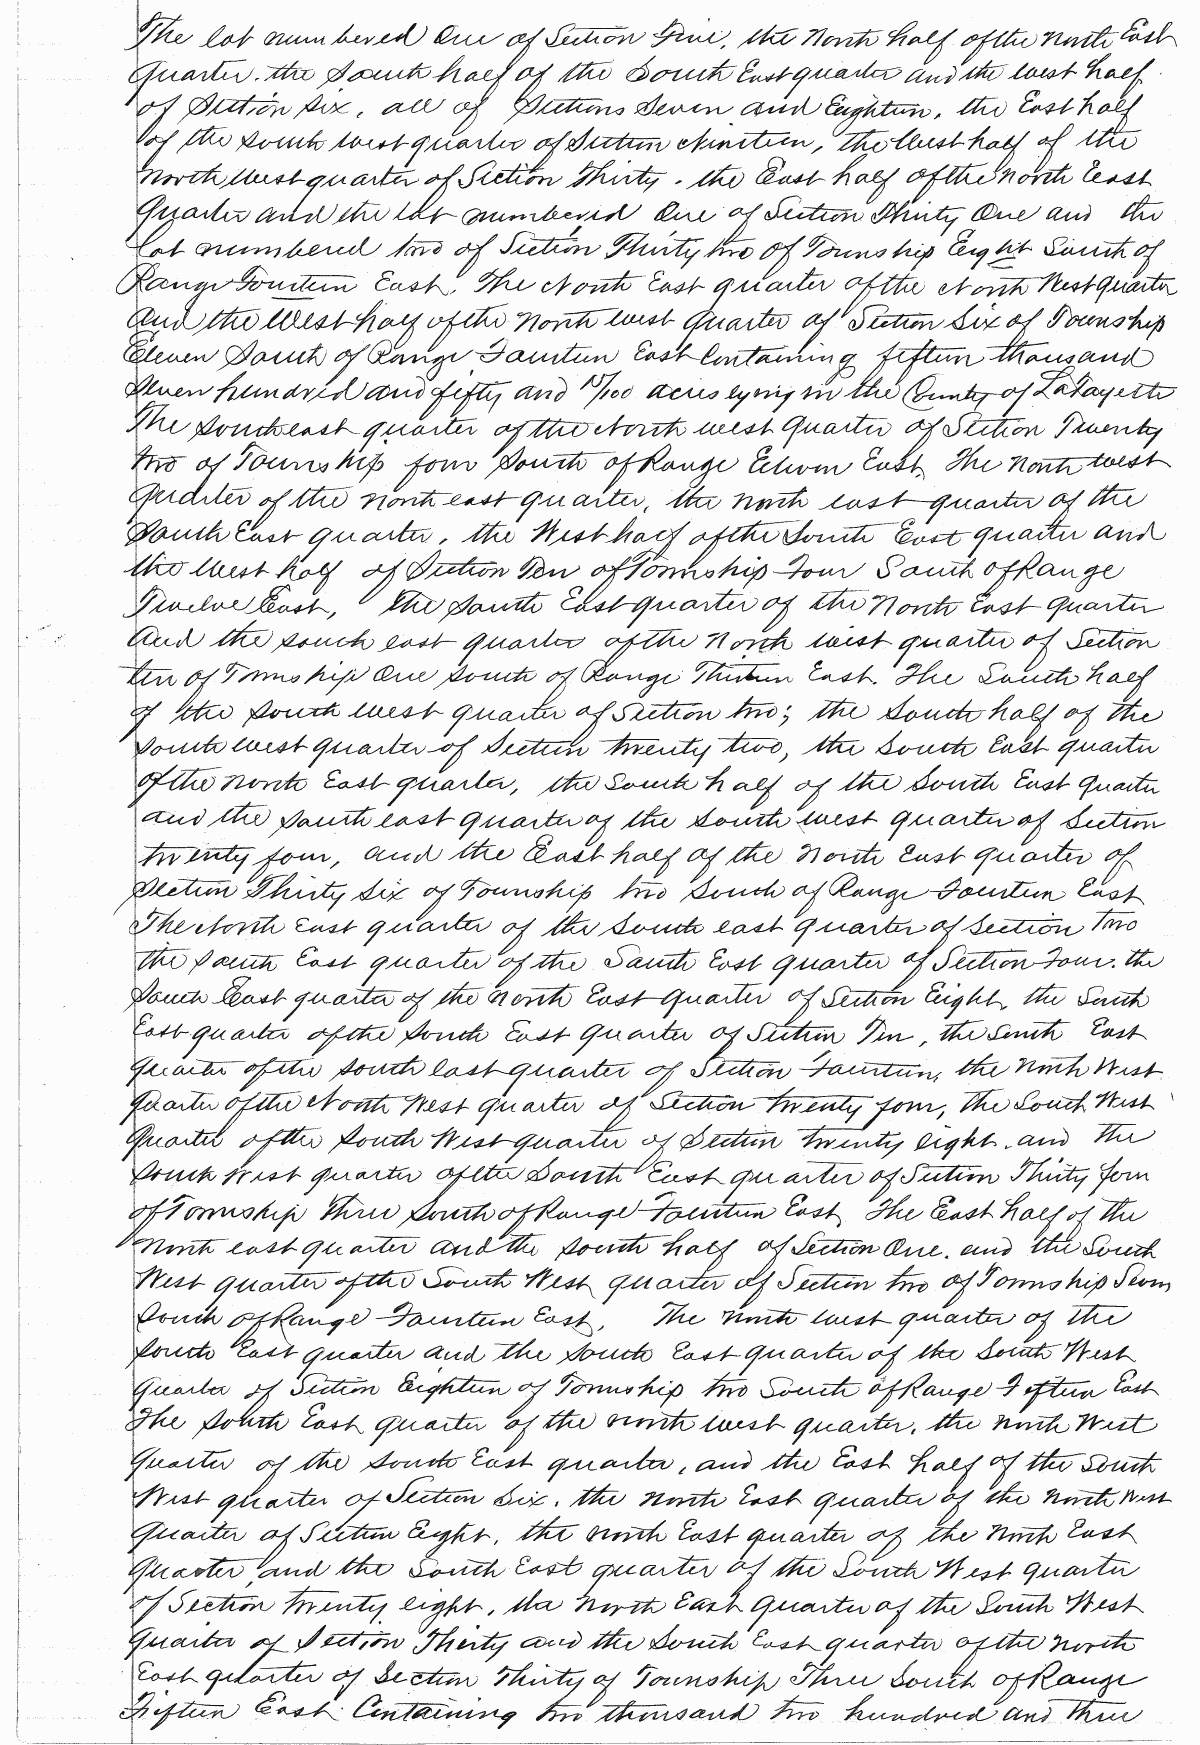 The lot numbered One of Section Five, the North half of the North East
quarter. the South half of the South East quarter and the West half
of Section Six, all of Sections Seven and Eighteen, the East half
of the South West quarter of Section Nineteen, the West half of the
North West quarter of Section Thirty. the East half of the North East
quarter and the lot numbered One of Section Thirty One and the
lot numbered two of Section Thirty two of Township Eight South of
Range Fourteen East. The North East quarter of the North West quarter
And the West half of the North West quarter of Section Six of Township
Eleven South of Range Fourteen East Containing fifteen thousand
Seven hundred and fifty and 15/100 acres lying in the County of LaFayette
The South east quarter of the North west quarter of Section Twenty
two of Township four South of Range Eleven East, The North West
quarter of the North east quarter, the North east quarter of the
South East quarter, the West half of the South East quarter and
the West half of Section Ten of Township Four South of Range
Twelve East, The South East quarter of the North East quarter
And the South east quarter of the North West quarter of Section
ten of Township One South of Range Thirteen East. The South half
of the South West quarter of Section two; the South half of the
South West quarter of Section twenty two, the South East quarter
of the North East quarter, the South half of the South East quarter
and the South east quarter of the South West quarter of Section
twenty four, and the East half of the North East quarter of
Section Thirty Six of Township two South of Range Fourteen East
The North East quarter of the South east quarter of Section Two
the South East quarter of the South East quarter of Section Four. the
South East quarter of the North East quarter of Section Eight, the South
East quarter of the South East quarter of Section Ten, the South East
quarter of the South east quarter of Section Fourteen, the North West
quarter of the North West quarter of Section Twenty four, the South West
quarter of the South West quarter of Section twenty eight. and the
South West quarter of the South East quarter of Section Thirty four
of Township Three South of Range Fourteen East, The East half of the
North east quarter and the South half of Section One. and the South
West quarter of the South West quarter of Section two of Township Seven
South of Range Fourteen East, The North West quarter of the
South East quarter and the South East quarter of the South West
quarter of Section Eighteen of Township two South of Range Fifteen East
The South East quarter of the North West quarter, the North West
quarter of the South East quarter, and the East half of the South
West quarter of Section Six. the North East quarter of the North West
quarter of Section Eight, the North East quarter of the North East
quarter, and the South East quarter of the South West quarter
of Section twenty eight, the North East quarter of the South West
quarter of Section Thirty and the South East quarter of the North
East quarter of Section Thirty of Township Three South of Range
Fifteen East Containing two thousand two hundred and three